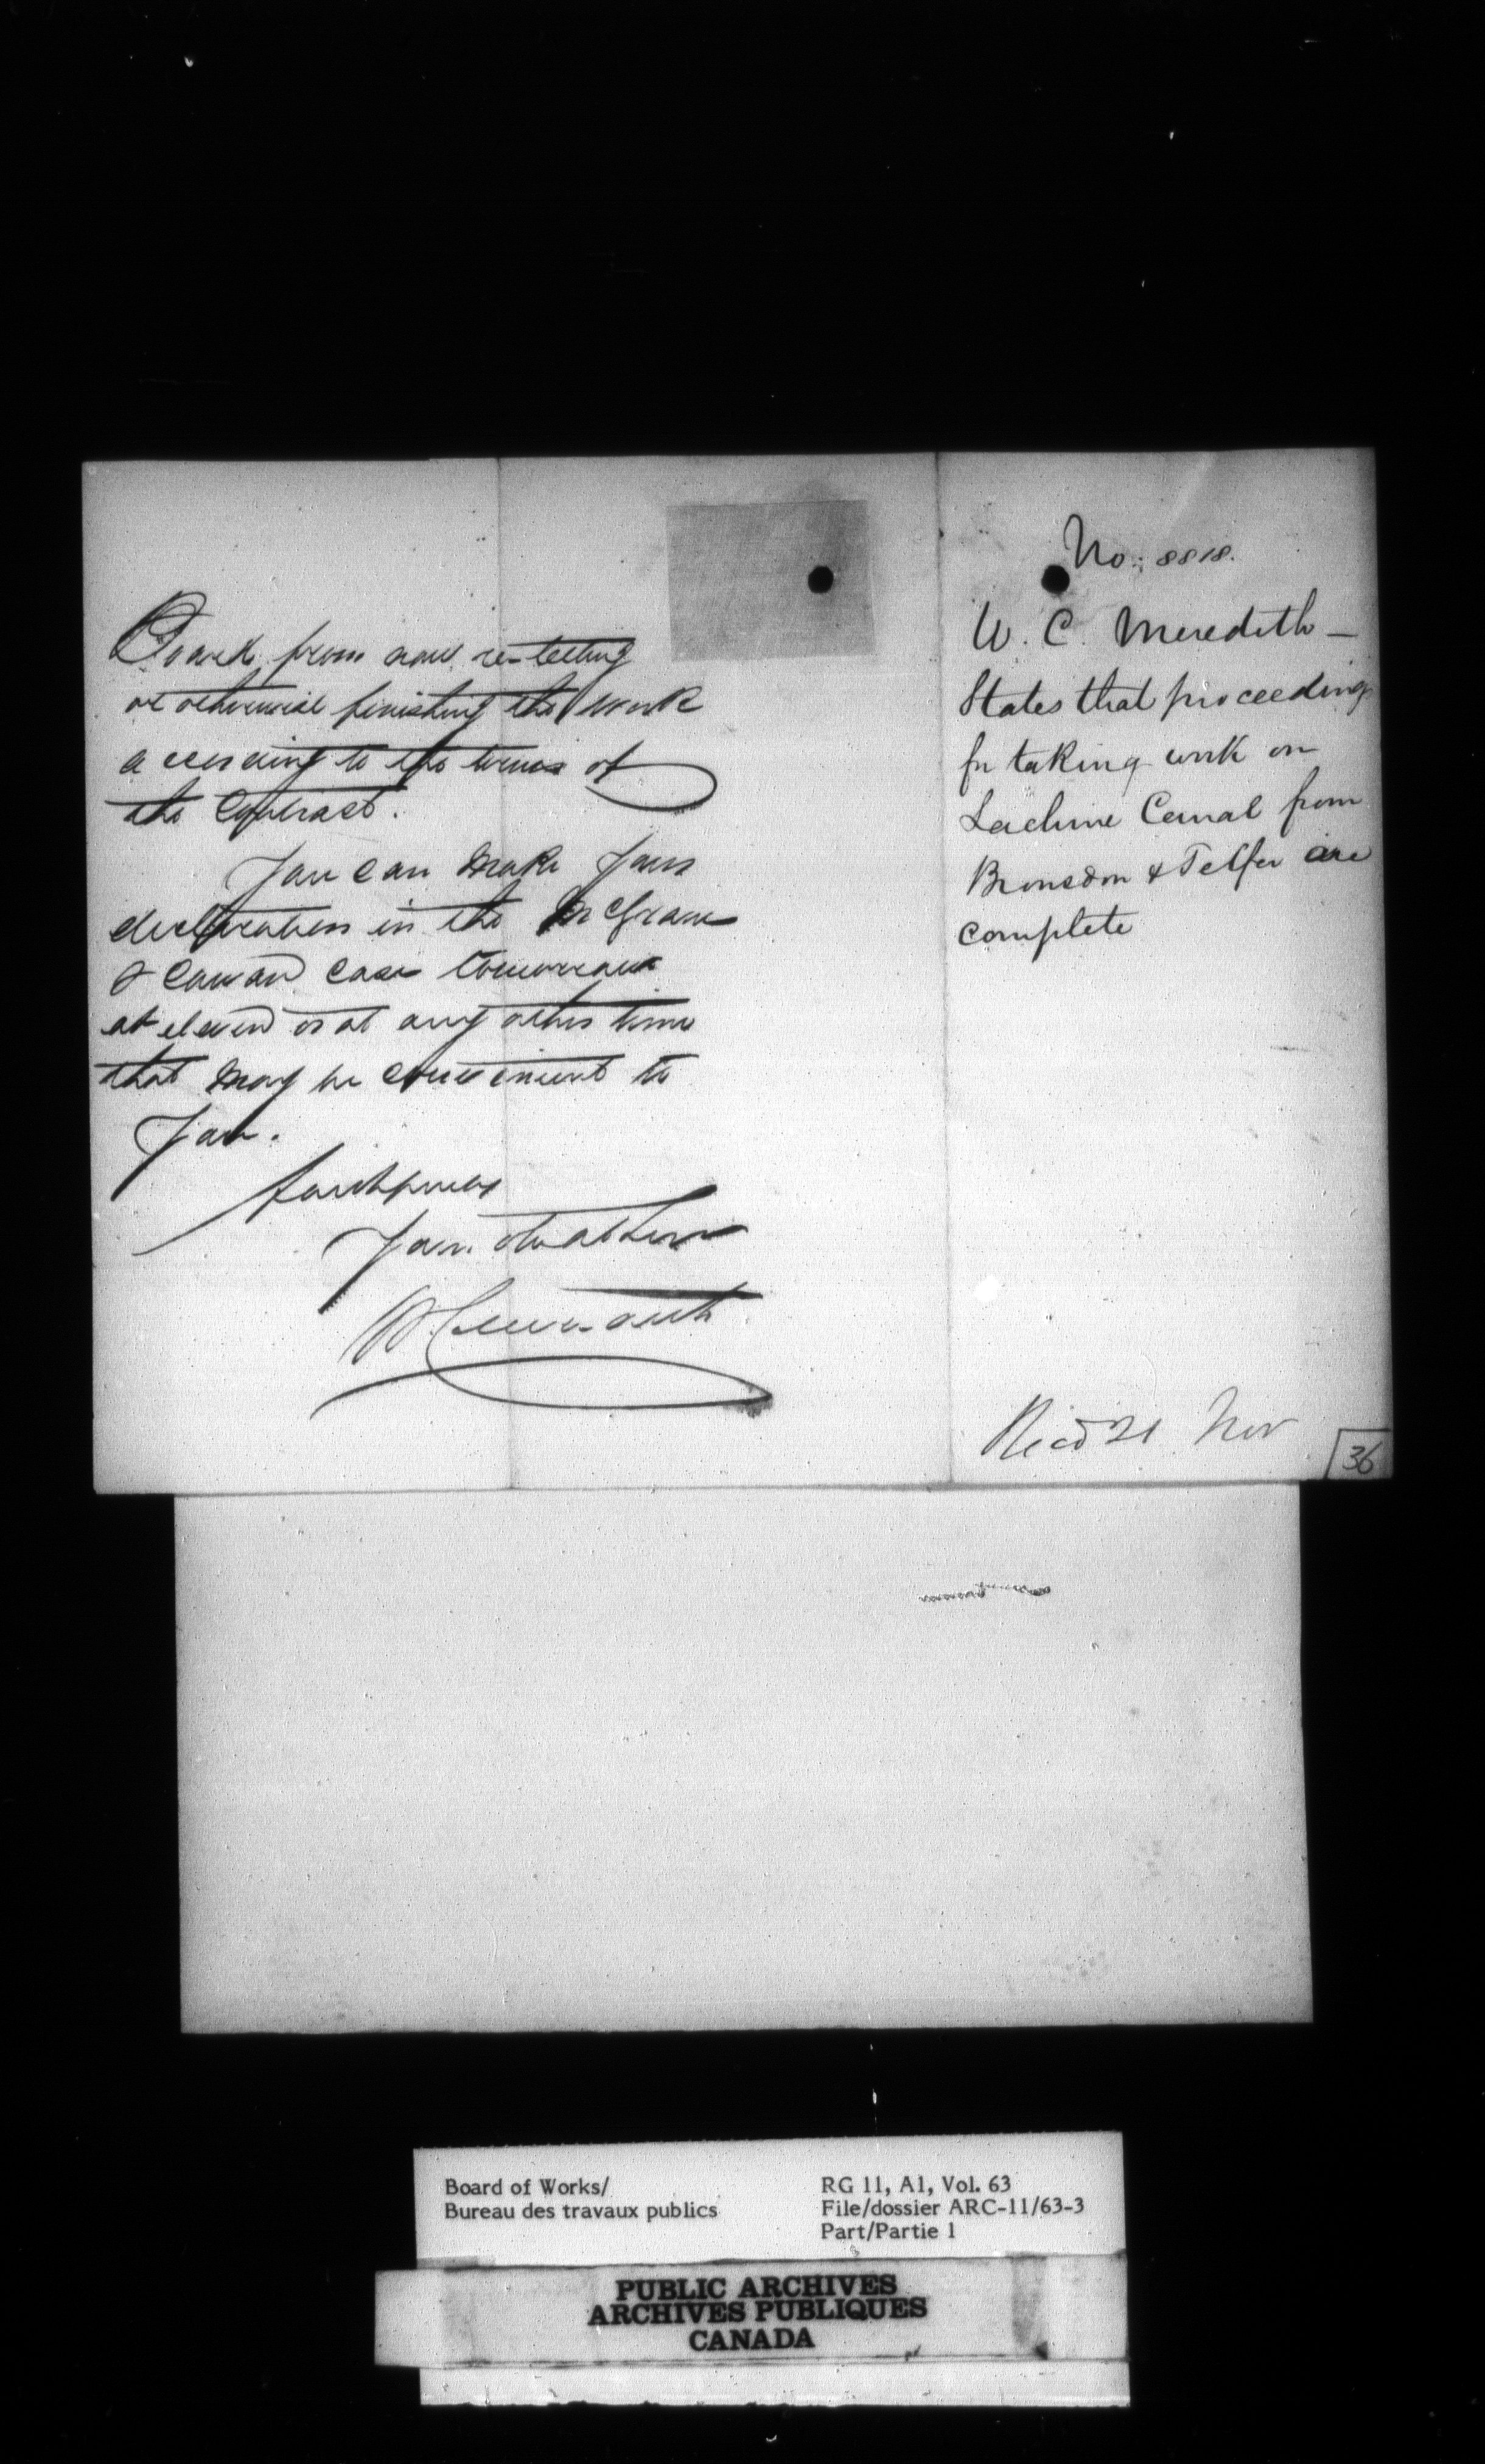 Board from now re-letting
or otherwise finishing the work
according to the terms of
the Contract.
You can make your
declaration in the McGrane
& Cowan case tomorrow
at eleven or at any other time
that may be convenient to
you.
faithfully
W C Meredith
No: 8818.
W. C. Meredith —
States that proceedings
for taking work on
Lachine Canal from
Bronsdon & Telfer are
complete
Recd 21 Nov
36
Board of Works/
Bureau des travaux publics
RG 11, A1, Vol. 63
File/dossier ARC-11/63-3
Part/Partie 1
PUBLIC ARCHIVES
ARCHIVES PUBLIQUES
CANADA